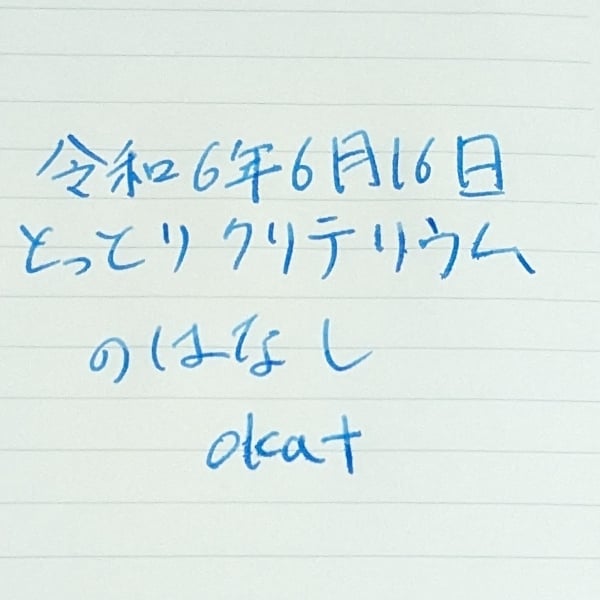 令和6年6月16日
とっとりクリテリウム
のはなし
okat